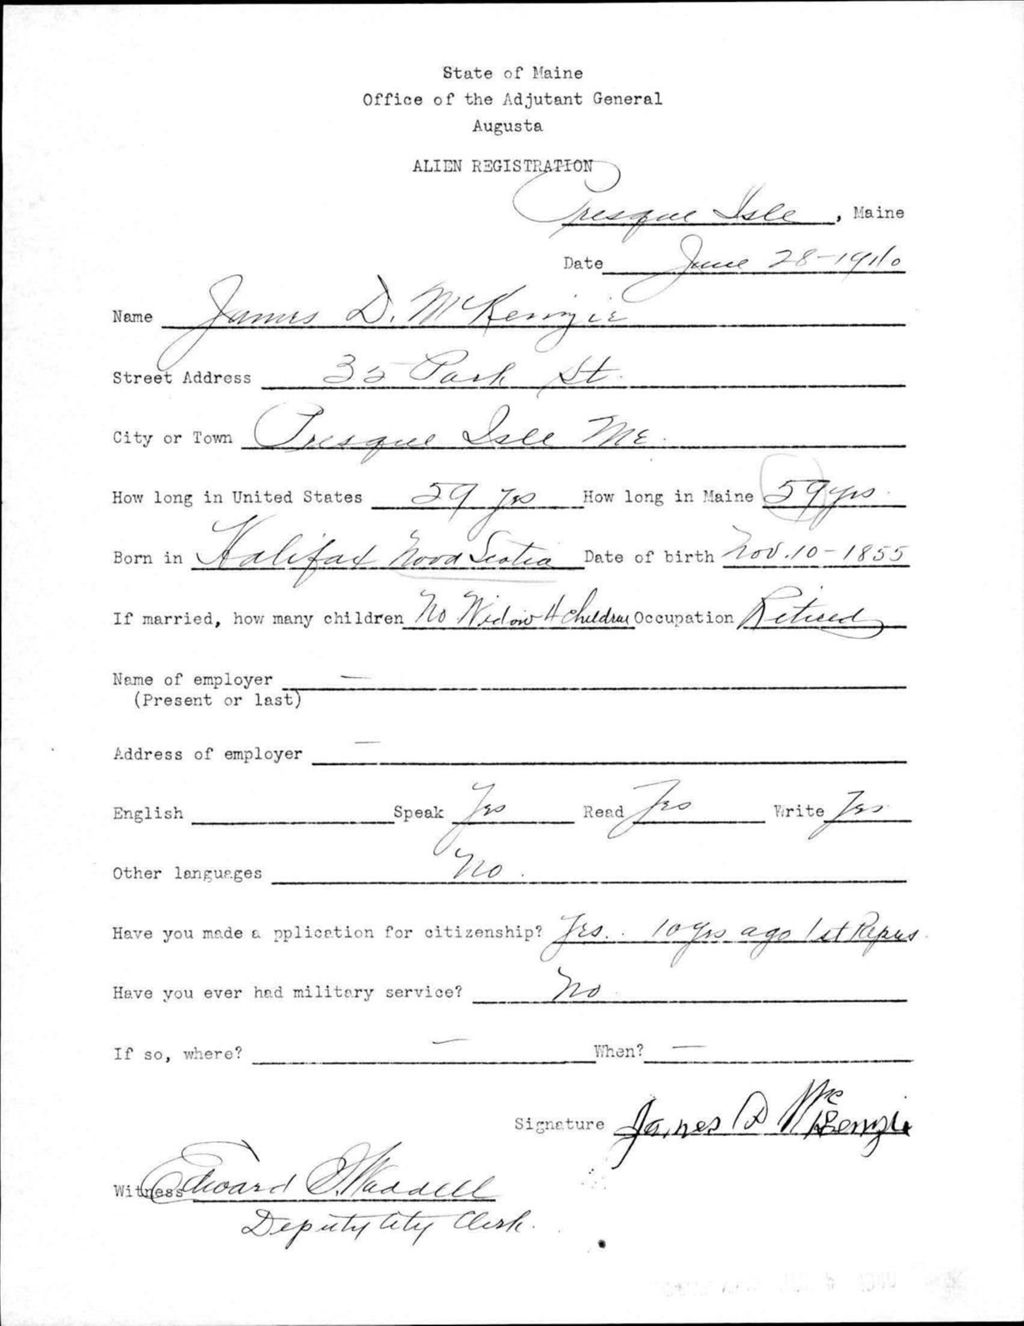 State of Maine
Office of the Adjutant General
Augusta
ALIEN REGISTRATION
Presque Isle, Maine
Date June 28-1940
Name James D. McKenzie
Street Address 35 Park St.
City or Town Presque Isle Me.
How long in United States 59 yrs How long in Maine 59 yrs.
Born in Halifax Nova Scotia Date of birth Nov. 10-1855
If married, how many children No Widow 4 Children Occupation Retired
Name of employer —
(Present or last)
Address of employer —
English Speak Yes Read Yes Write Yes
Other languages No.
Have you made a pplication for citizenship? Yes.. 10 yrs ago 1st Papers.
Have you ever had military service? No
If so, where? — When? —
Signature James D McKenzie
Witness Edward Waddell
Deputy City Clerk.